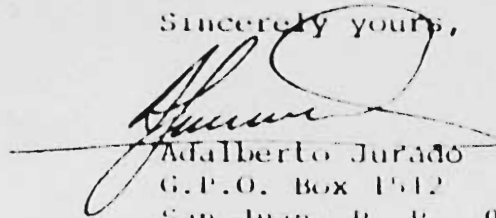 Sincerely yours,
Adalberto Jurado
G.P.O. Box 1512
San Juan, P. R.